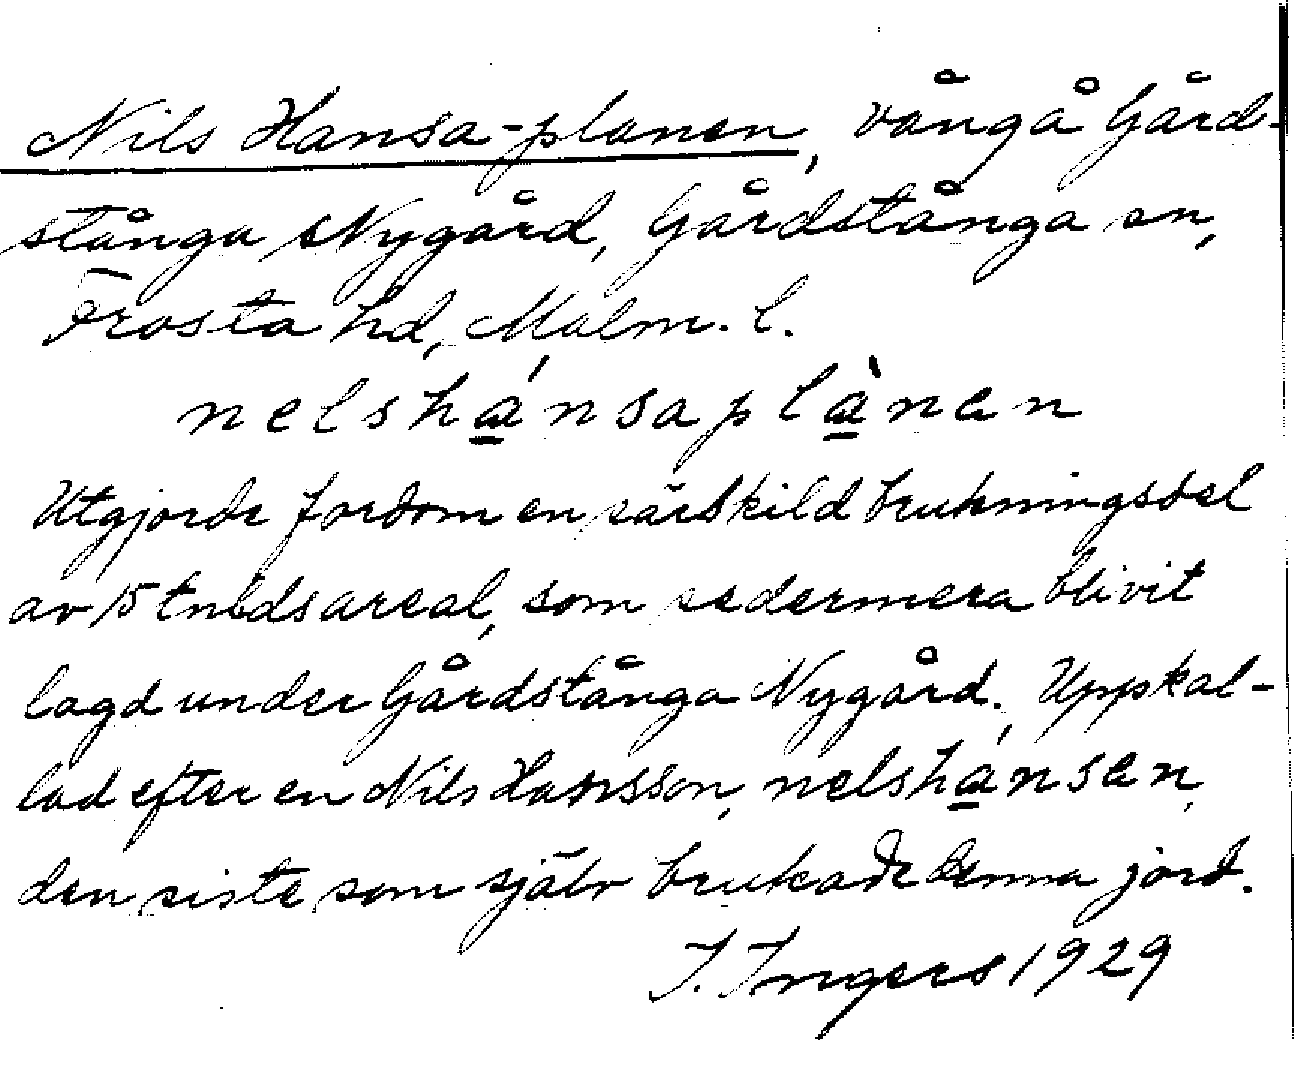 Nils Hansa-planen, vång å Gård-
stånga Nygård, Gårdstånga sn,
Frosta hd, Malm. l.
nelshánsaplànen
Utgjorde fordom en särskild brukningsdel
av 15 tnlds areal, som sedermera blivit
lagd under Gårdstånga Nygård. Uppkal-
lad efter en Nils Hansson, nelshánsen,
den siste som själv brukade denna jord.
I. Ingers 1929